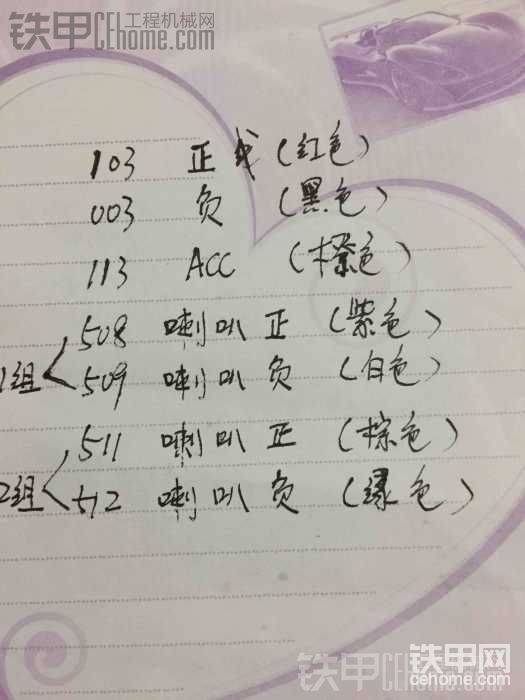 铁甲 工程机械网
CEhome.com
103 正线(红色)
003 负 (黑色)
113 ACC (橙色)
1组 508 喇叭正 (紫色)
509 喇叭负 (白色)
2组 511 喇叭正 (棕色)
512 喇叭负 (绿色)
铁甲网
cehome.com
铁甲CEhome.com